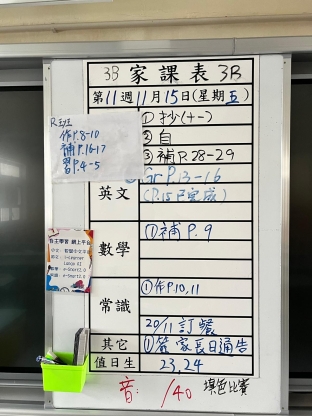 3B 家課表 3B
第11週11月15日(星期五)
R班
作P.8-10
補P.16-17
習P.4-5
①抄(十一)
②自
③補P.28-29
英文
Gr P.13-16
(P.15已完成)
數學
①補P.9
自主學習 網上平台
常識
①作P.10,11
20/11 訂餐
其它
①簽家長日通告
值日生
23,24
音: /40 填色比賽